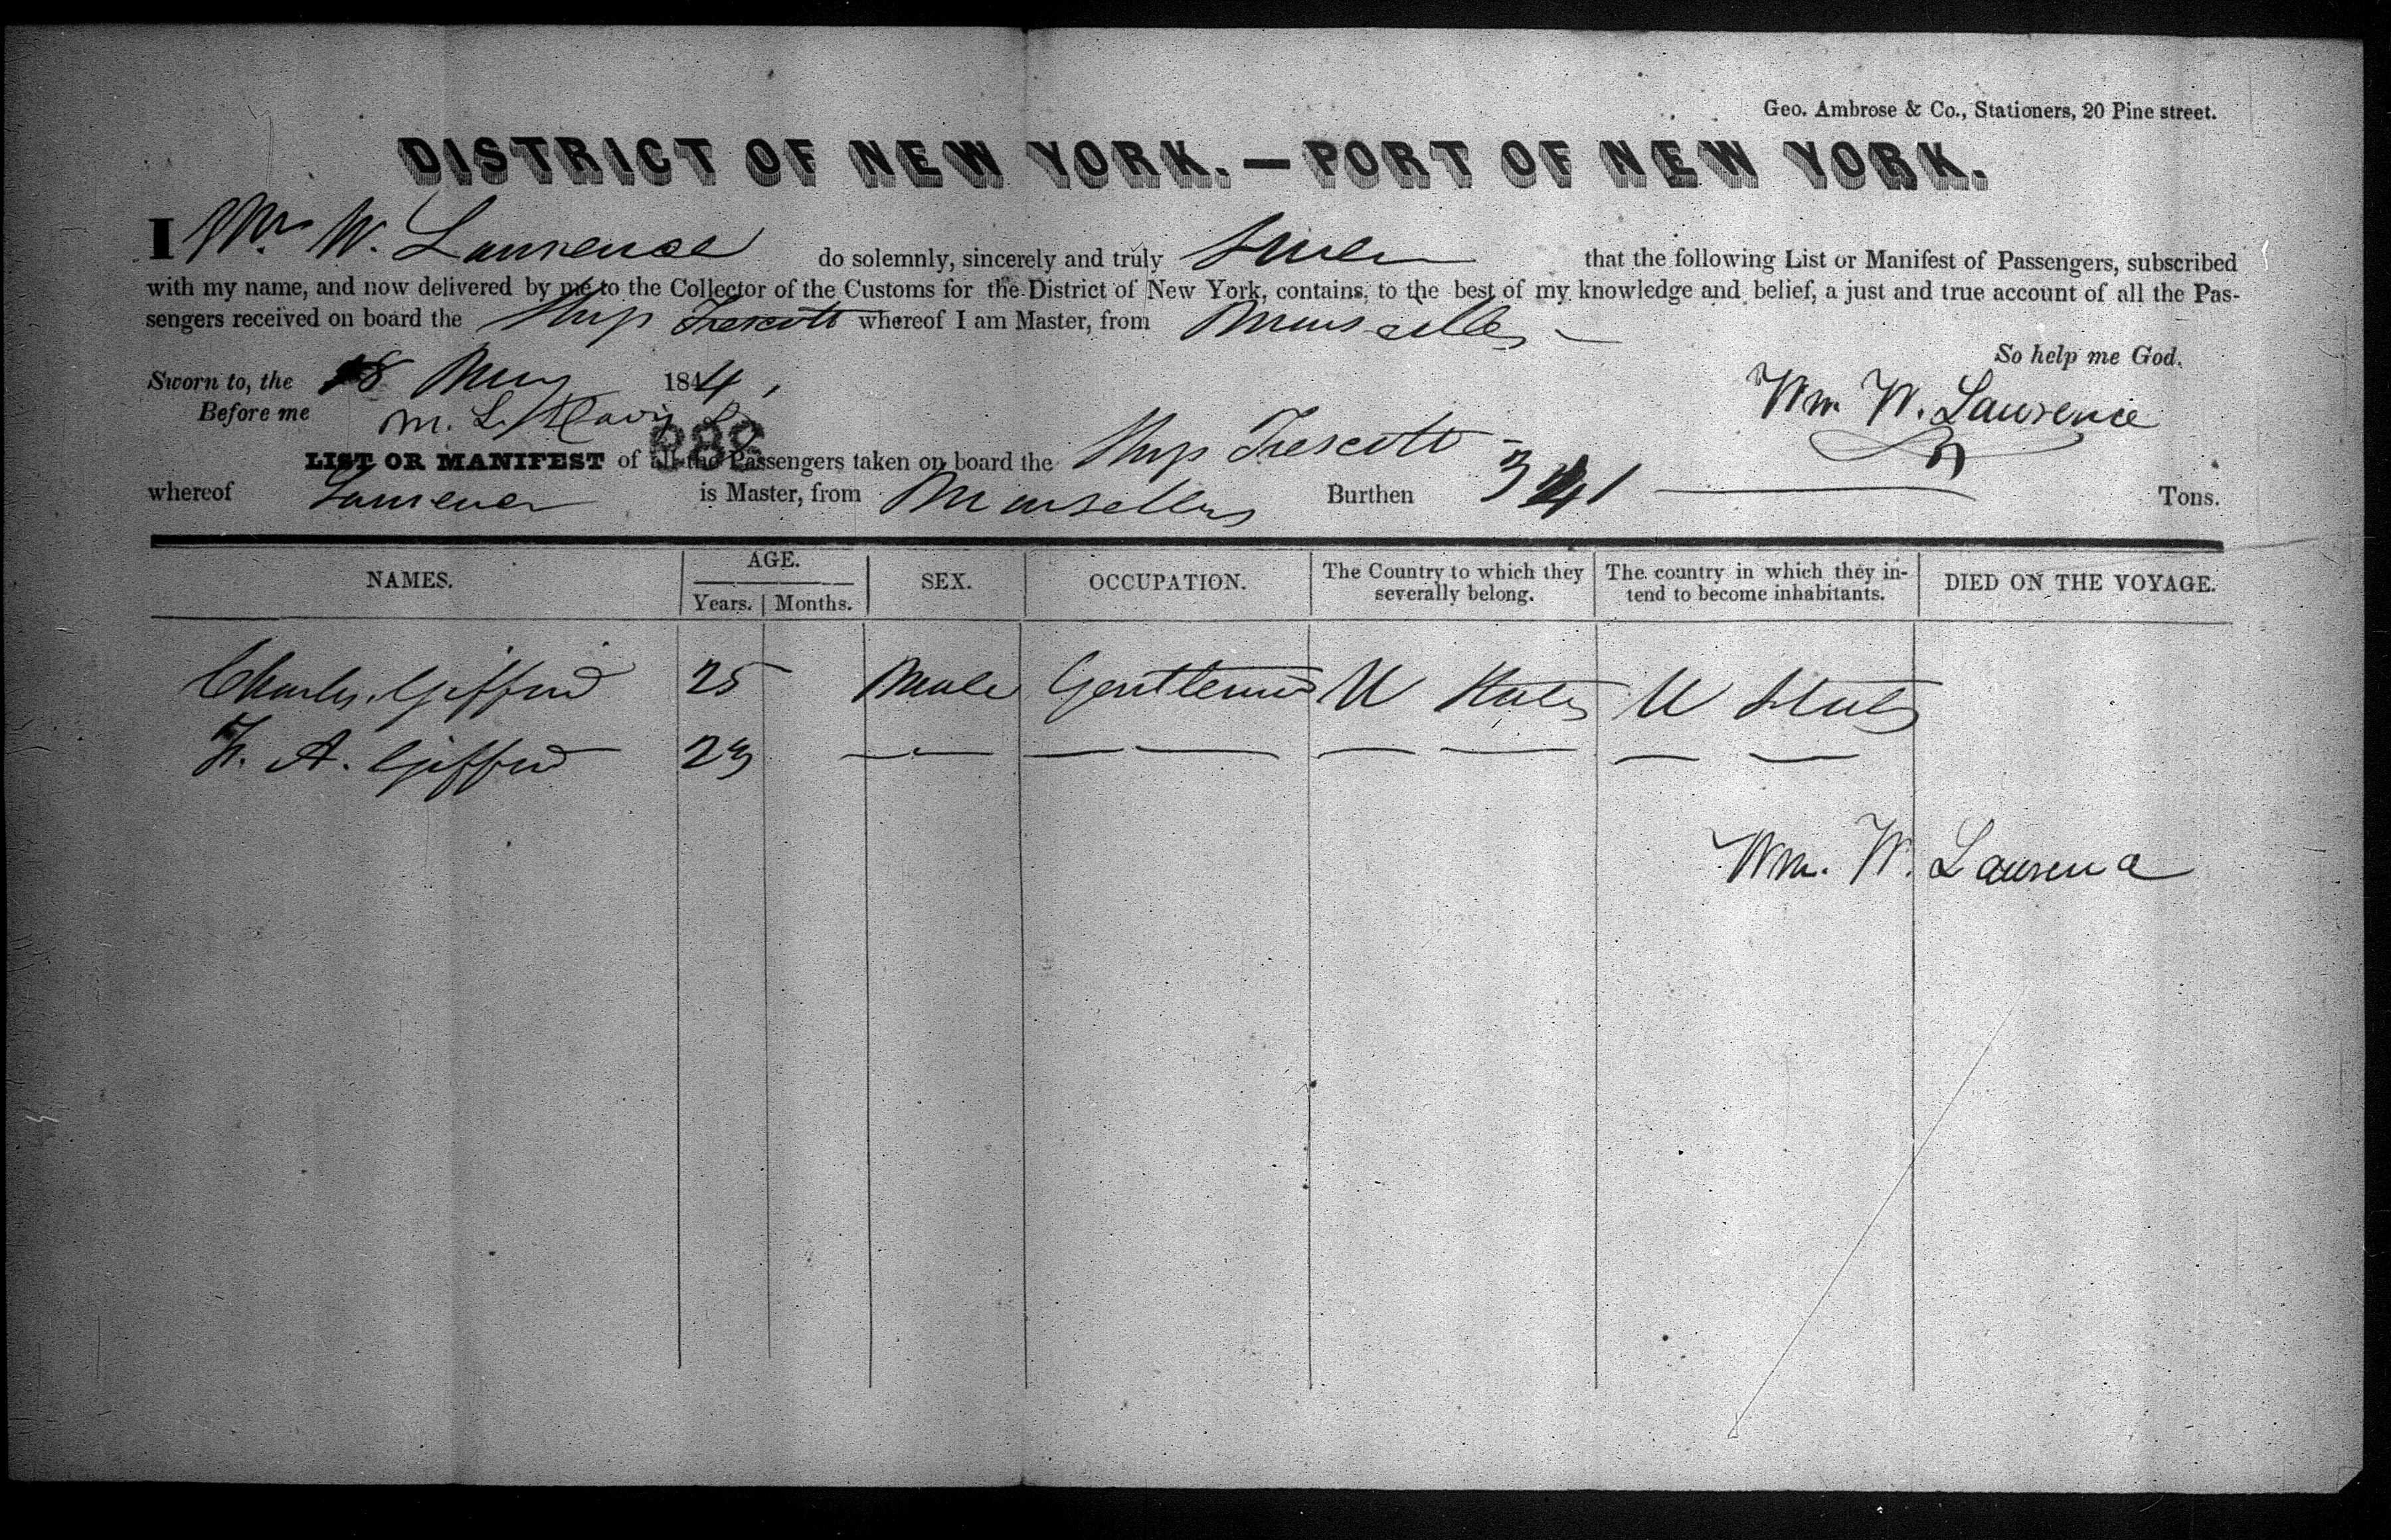 Geo. Ambrose & Co., Stationers, 20 Pine street.
DISTRICT OF NEW YORK. — PORT OF NEW YORK.
I Wm W. Lawrence do solemnly, sincerely and truly swear that the following List or Manifest of Passengers, subscribed
with my name, and now delivered by me to the Collector of the Customs for the District of New York, contains, to the best of my knowledge and belief, a just and true account of all the Pas-
sengers received on board the Ship Trescott whereof I am Master, from Marseilles
So help me God.
Sworn to, the 18 May 1844,
Wm W. Lawrence
Before me M. L. Davis
LIST OR MANIFEST of all the Passengers taken on board the Ship Trescott
whereof Lawrence is Master, from Marselles Burthen 341 Tons.
NAMES. AGE. SEX. OCCUPATION. The Country to which they severally belong. The country in which they in-tend to become inhabitants. DIED ON THE VOYAGE.
Years. Months.
Charles Gifford 25 Male Gentleman U States U States
A. Gifford 23 — — — — — — —
Wm. W. Lawrence